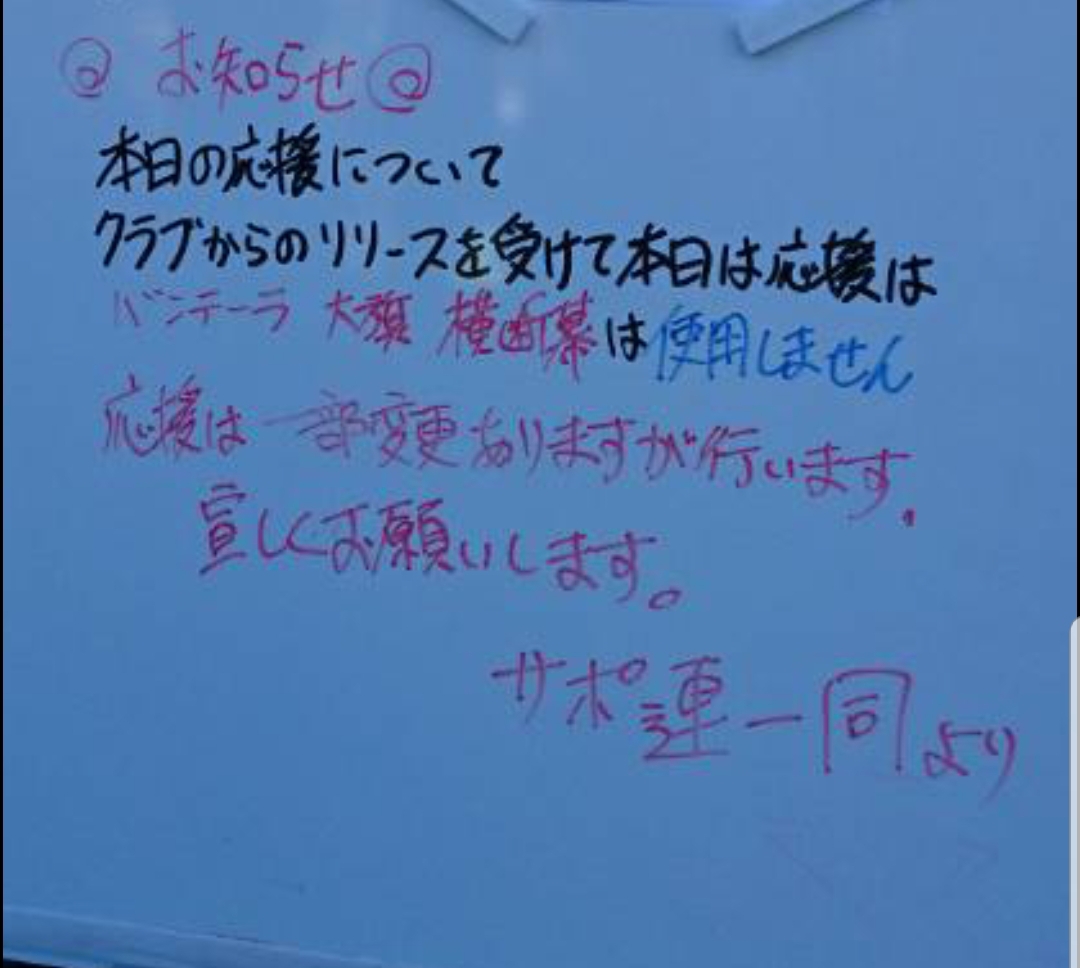 ◎ お知らせ ◎
本日の応援について
クラブからのリリースを受けて本日は応援は
バンデーラ 大旗 横断幕は使用しません
応援は一部変更ありますが行います.
宜しくお願いします。
サポ連一同より